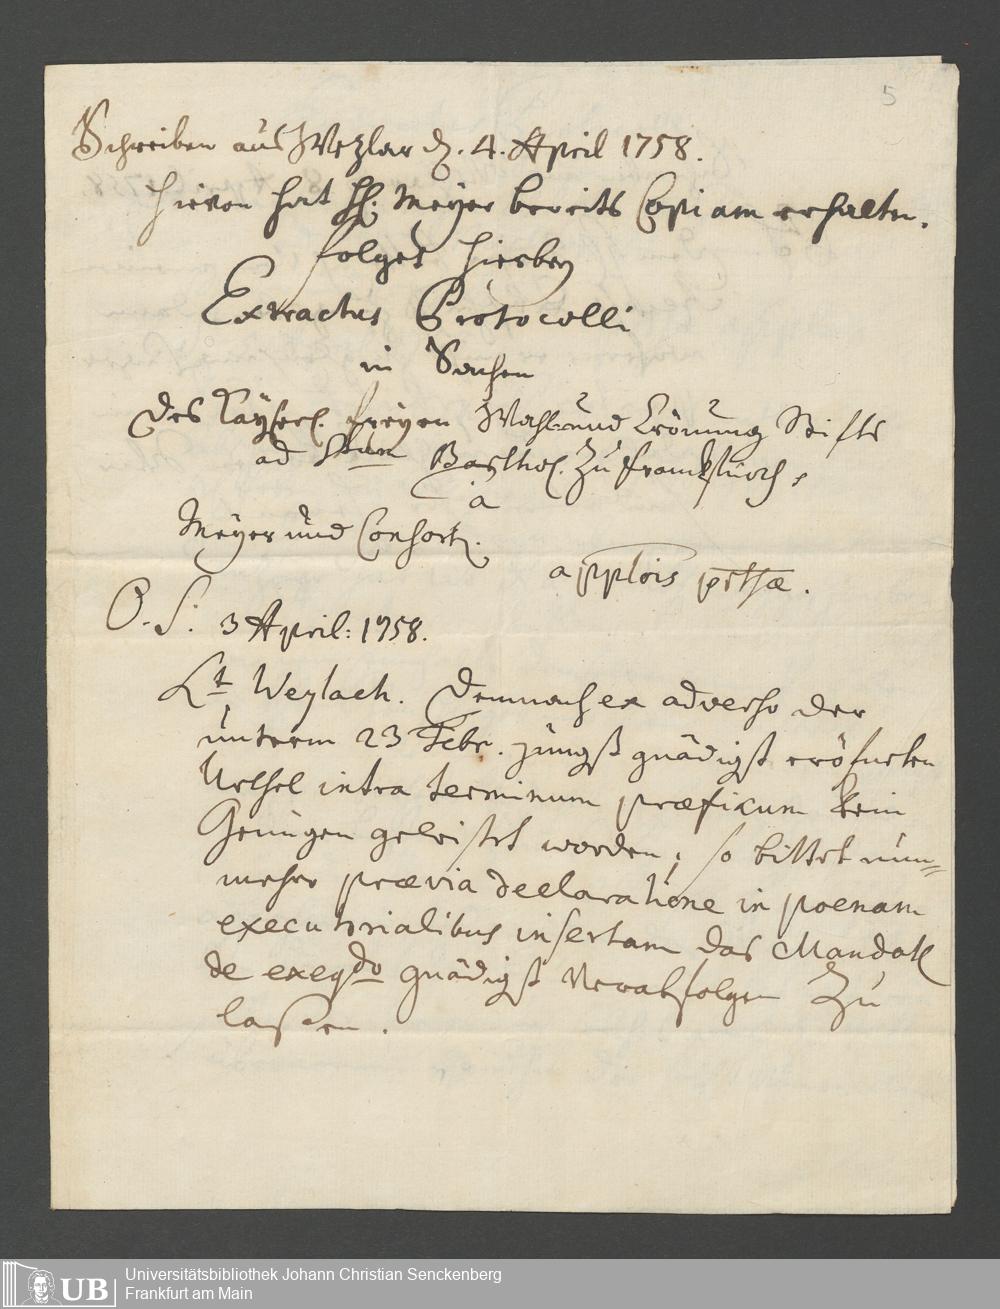 5
Schreiben aus Wetzlar d. 4. April 1758.
hievon hat H. Meyer bereits Copiam erhalten.
folget hierbey
Extractus Protocolli
in Sachen
Des Kayserl. freyen Wahl- und Crönung Stiffts
ad Stum Barthol. zu Franckfurth,
à
Meyer und Consort.
applois prthæ.
O. S. 3 April: 1758.
Lt Weylach. Demnach ex adverso der
unterm 23 Febr. jüngst gnädigst eröfneten
Urthel intra terminum præfixum kein
Genügen geleistet worden; so bittet nun=
mehr prævia declaratione in poenam
executorialibus insertam das Mandat
de exeqdo gnädigst verabfolgen zu
lassen.
UB
Universitätsbibliothek Johann Christian Senckenberg
Frankfurt am Main